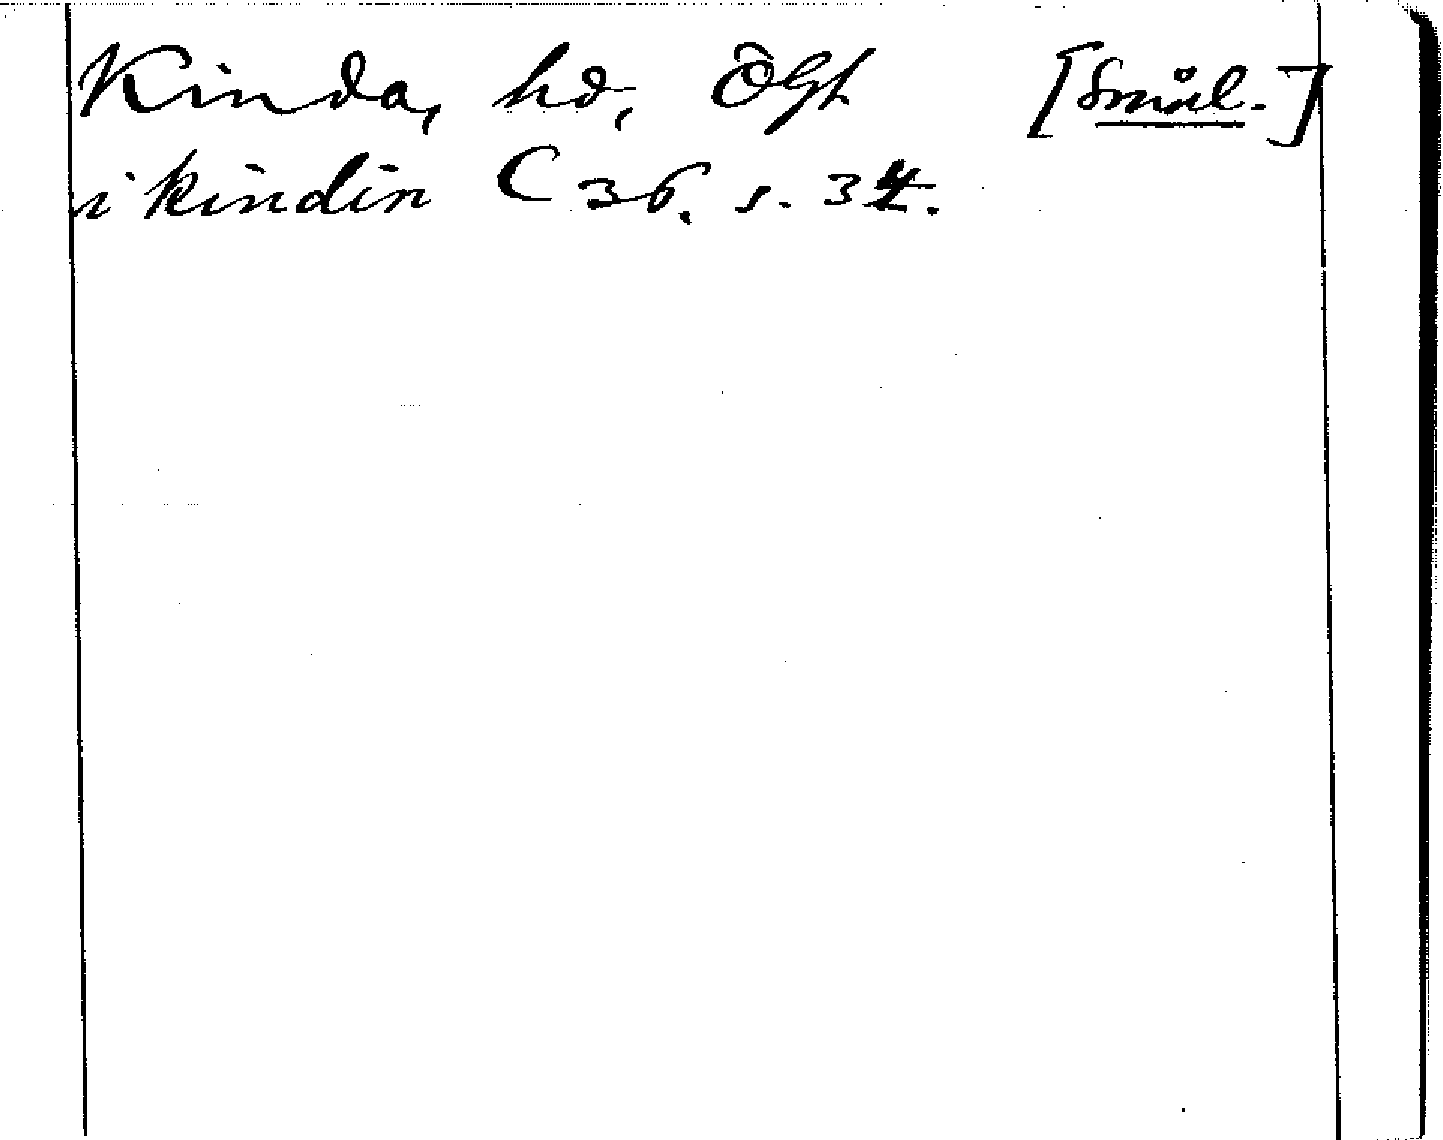 Kinda, hd, Ögl [Smål.]
i kindin C 36. s. 34.